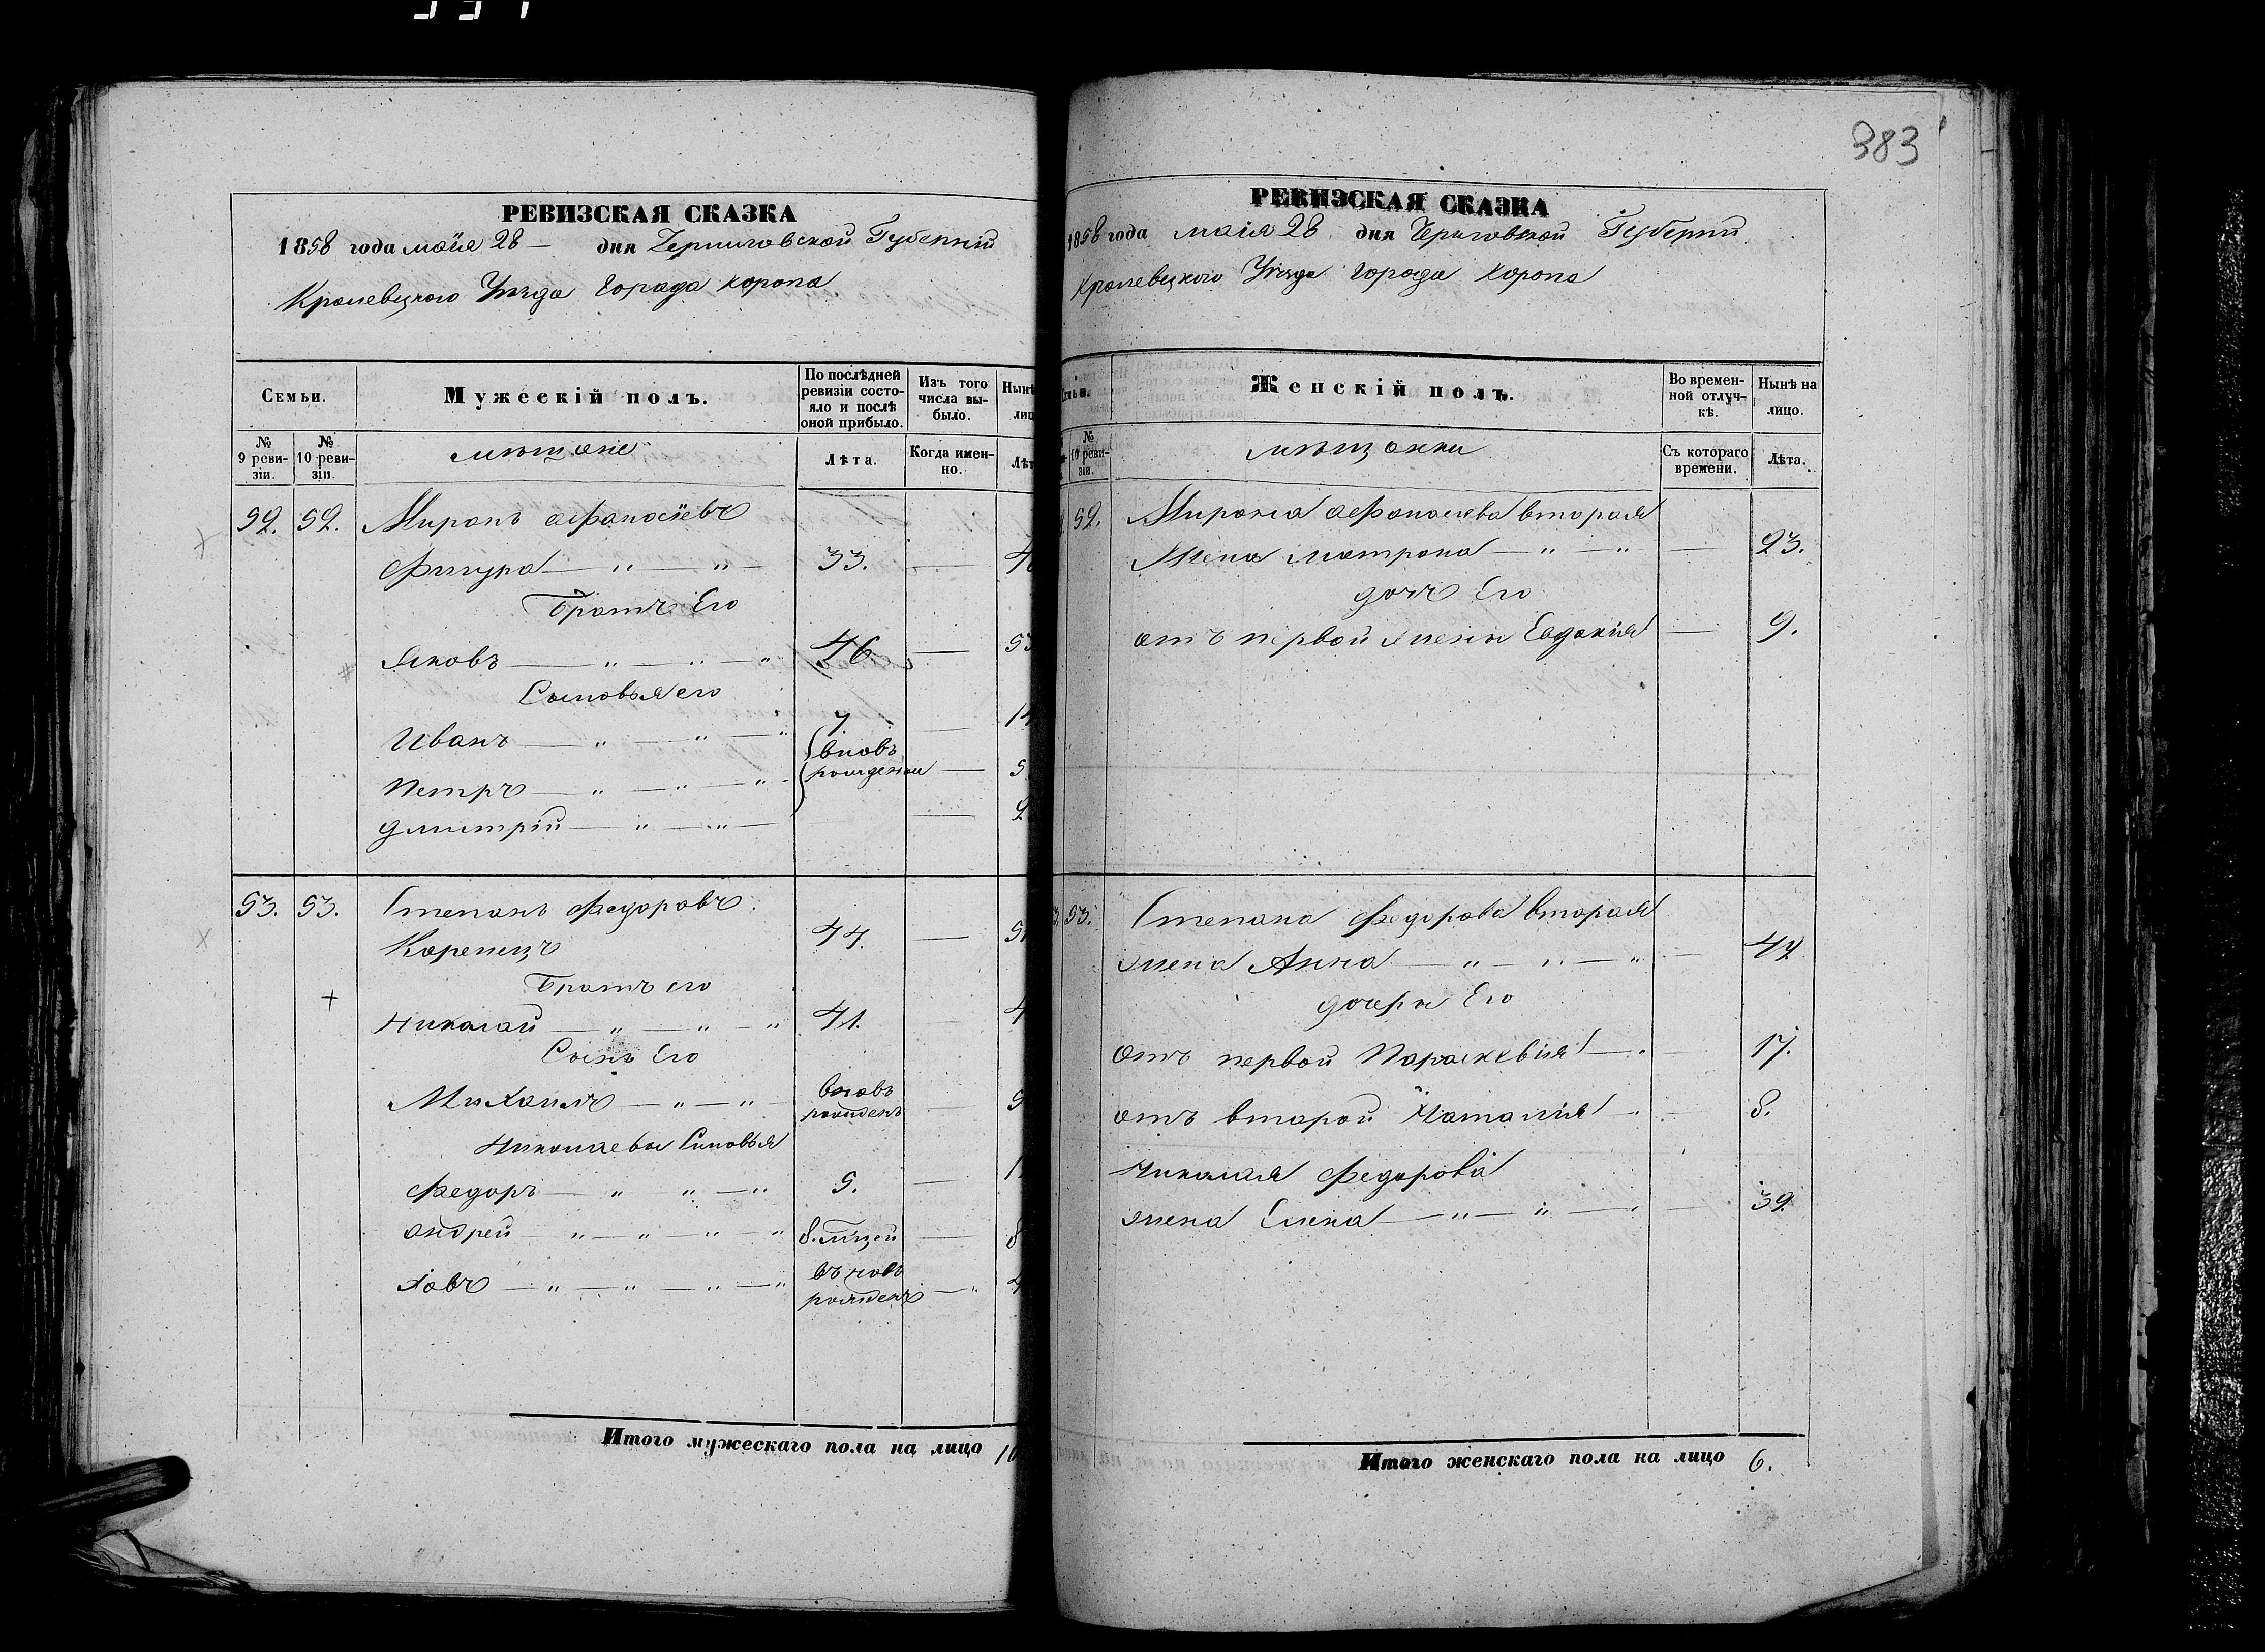 383
РЕВИЗСКАЯ СКАЗКА
1858 года маїя 28 — дня Черниговской Губерніи
Кролевецкого Уѣзда Города Коропа
Семьи.
Мужескій полъ.
По послѣдней ревизіи состо-
яло и послѣ оной прибыло.
Изъ того числа вы-
было.
Нынѣ
лиц
№ 9 реви-
зіи.
№ 10 реви-
зіи.
мѣщане
Лѣта.
Когда имен-
но.
Лѣт
52. 52. Миронъ Афанасіевъ
Фигура — " — " — 33. — 4
Братъ Его
Яковъ — " — " — " 46. — 53
Сыновья его
Иванъ — " — " — " 7. — 14
Петръ — " — " — " вновь рожденые — 5
Дмитрій — " — " — — 2
53. 53. Степанъ Федоровъ
Корепецъ 44. — 51
Братъ его
Николай — " — " — " 41. — 4
Сынъ Его
Михаилъ — " — " — вновь рожденъ — 9
Николаевы Сыновья
Федоръ — " " — " 5. — 1
Андрей — " — " — " — " 8. мѣцей — 8
Іовъ — " — " — " — " въновь рожденъ — " 4
Итого мужескаго пола на лицо 10
РЕВИЗСКАЯ СКАЗКА
1858 года маія 28 дня Чернговской Губерніи
Кролевецкого Уѣзда Города Коропа
Семьи.
Женскій полъ.
Во времен-
ной отлуч-
кѣ.
Нынѣ на
лицо.
№ 10 реви-
зіи.
мѣщанки
Съ котораго
времени.
Лѣта.
52. Мирона Афанасиева вторая
Жена Матрона — " — " — 23.
дочь Его
отъ первой жены Евдокія — 9.
53. Степана Федорова вторая
жена Анна — " — " — " — 42
дочери Его
отъ первой Параскевія — 17.
отъ второй Наталія — 8.
Николая Федорова
жена Елена — " — " — " — 39.
Итого женскаго пола на лицо 6.